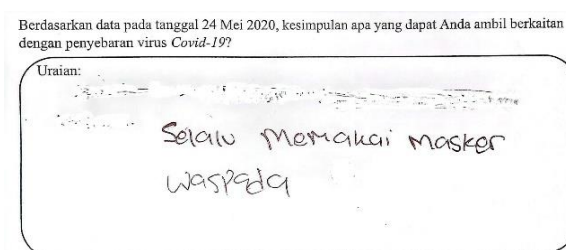 Berdasarkan data pada tanggal 24 Mei 2020, kesimpulan apa yang dapat Anda ambil berkaitan
dengan penyebaran virus Covid-19?
Uraian:
Selalu Memakai Masker
Waspada